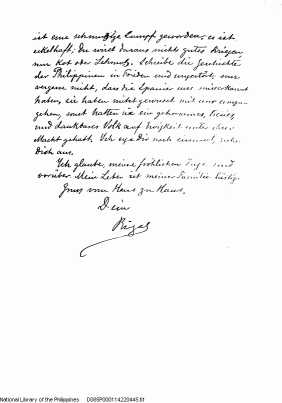 ist eine schmutzige Sumpf geworden, es ist
ekelhaft. Du wirst daraus nichts gutes kriegen,
nur Kot oder Schmutz. Schreibe die Geschichte
der Philippinen in Frieden und ungestört, nur
vergesse nicht, dass die Spanier uns misserkannt
haben, sie haben nicht gewusst mit uns umzu-
gehen, sonst hätten sie ein gehorsames, treues
und dankbares Volk auf Ewigkeit unter ihrer
Macht gehabt. Ich
Dich aus.
Ich glaube, meine fröhlichen Tage sind
vorüber. Mein Leben ist meiner Familie
Gruss von Haus zu Haus.
Dein
Rizal
National Library of the Philippines DG85P000114220445.tif